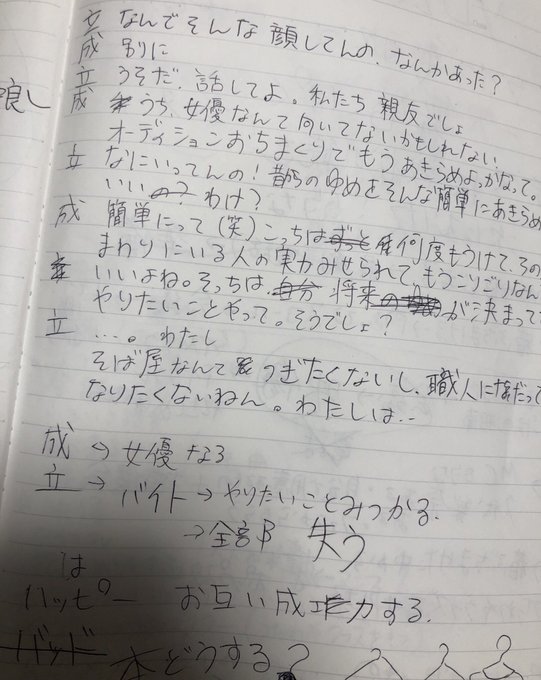 立 なんでそんな顔してんの、なんかあった?
成 別に
立 うそだ、話してよ。私たち親友でしょ
成 うち、女優なんて向いてないかもしれない
オーディションおちまくりでもうあきらめよっかなって。
立 なにいってんの!昔からのゆめをそんな簡単にあきらめ
いい の? わけ?
成 簡単にって(笑)こっちはずっと何度もうけて、その
まわりにいる人の実力みせられて、もうこりごりなん
いいよね。そっちは、自分 将来 が決まって
やりたいことやって。そうでしょ?
立 …。わたし
そば屋なんてつぎたくないし、職人に だって
なりたくないねん。わたしは…
成 → 女優なる
立 → バイト → やりたいことみつかる。
→ 全部 失う
は
ハッピー お互い成功する。
バッド 本どうする?